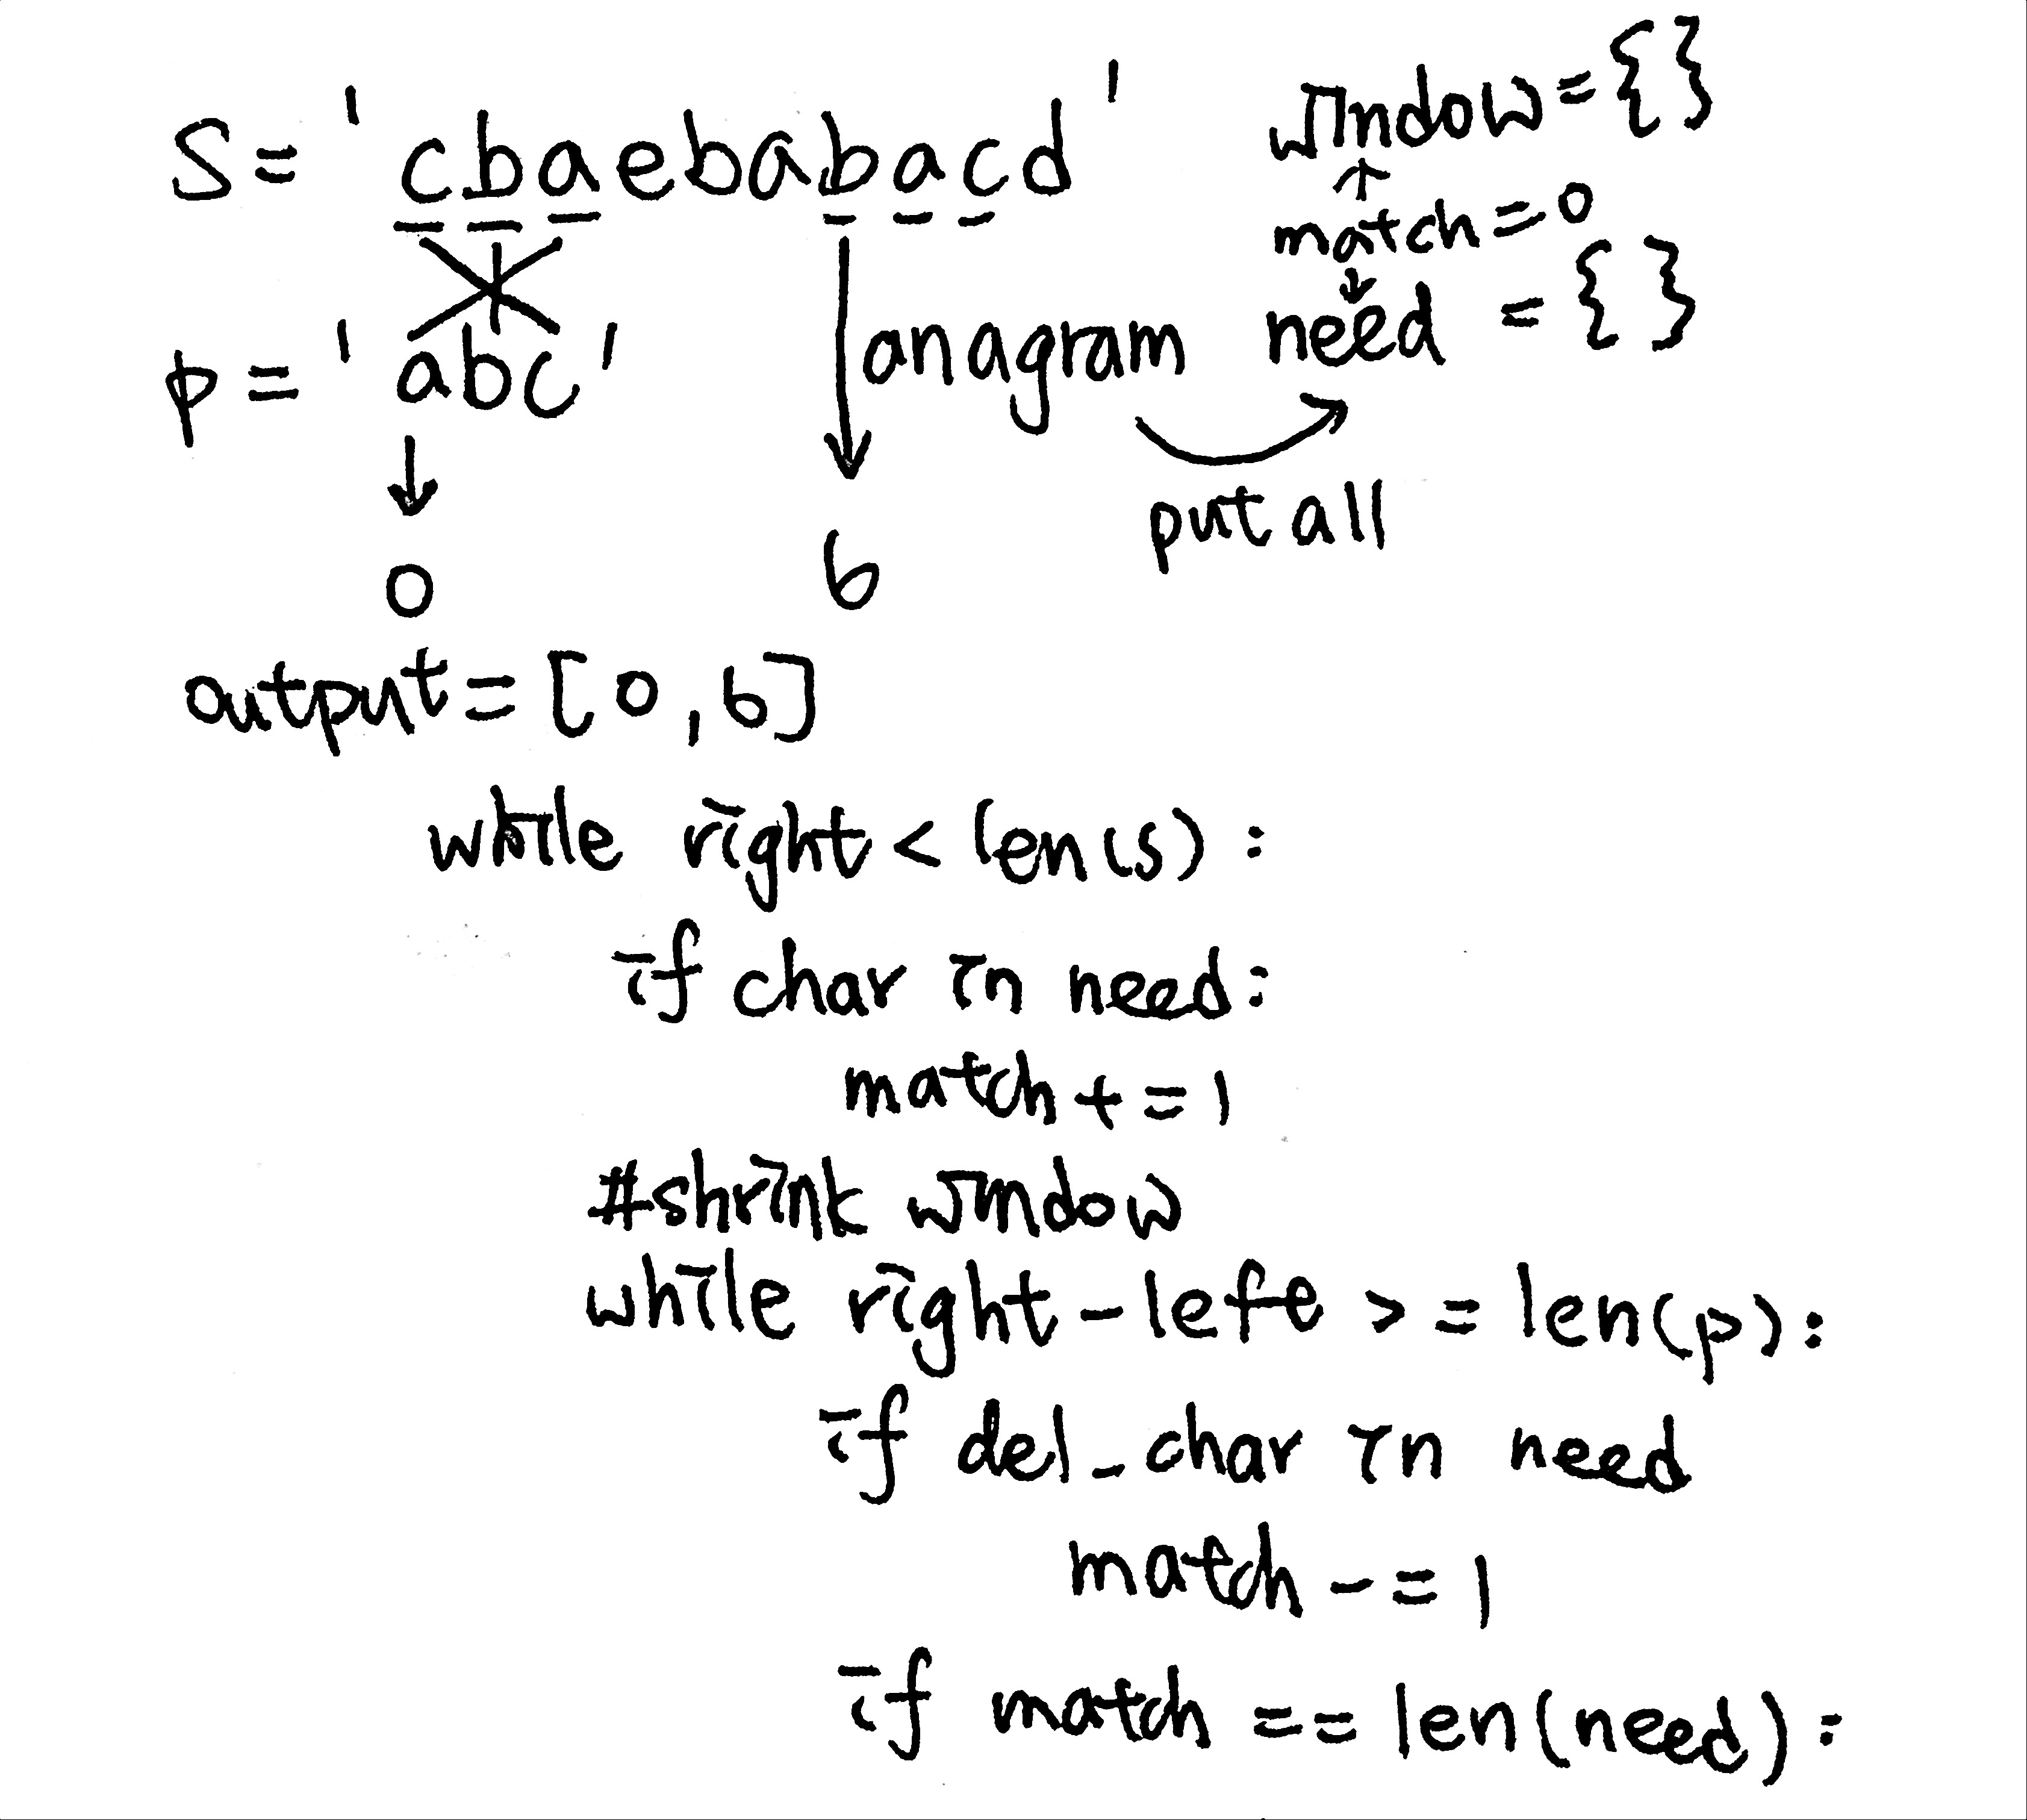 S= 'cbaebabacd'
window={}
match=0
p= 'abc'
anagram
need = {}
put all
0
6
output=[0,6]
while right < len(s):
if char in need:
match+=1
#shrink window
while right-left >= len(p):
if del_char in need
match-=1
if match == len(need):